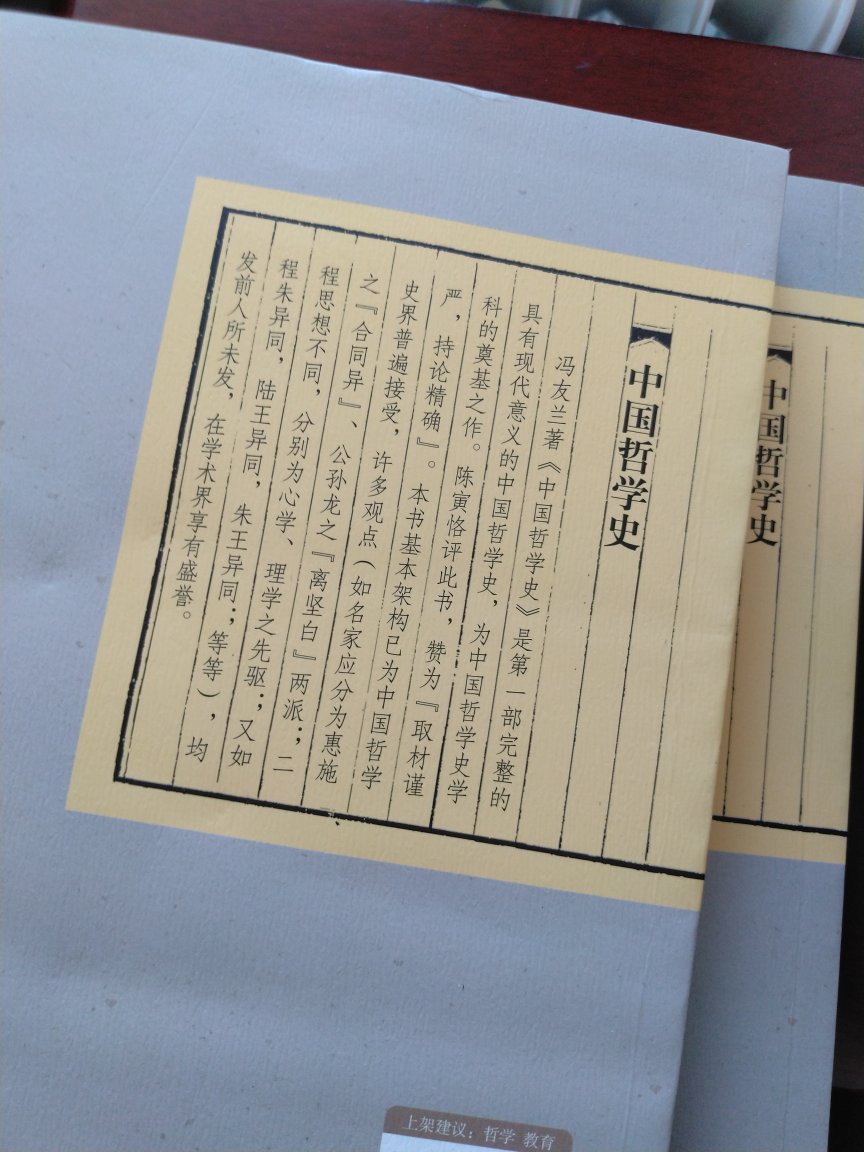 中国哲学史
冯友兰著《中国哲学史》是第一部完整的
具有现代意义的中国哲学史，为中国哲学史学
科的奠基之作。陈寅恪评此书，赞为『取材谨
严，持论精确』。本书基本架构已为中国哲学
史界普遍接受，许多观点（如名家应分为惠施
之『合同异』、公孙龙之『离坚白』两派；二
程思想不同，分别为心学、理学之先驱；又如
程朱异同，陆王异同，朱王异同；等等），均
发前人所未发，在学术界享有盛誉。
中国哲学史
上架建议：哲学 教育